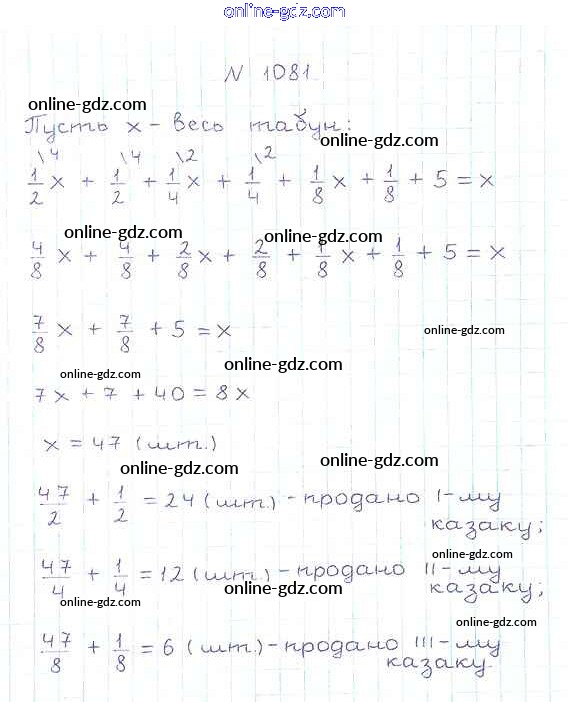 online-gdz.com
N 1081
online-gdz.com
Пусть x - весь табун:
online-gdz.com
\4 \4 \2 \2
1/2 x + 1/2 + 1/4 x + 1/4 + 1/8 x + 1/8 + 5 = x
online-gdz.com
online-gdz.com online-gdz.com
4/8 x + 4/8 + 2/8 x + 2/8 + 1/8 x + 1/8 + 5 = x
7/8 x + 7/8 + 5 = x
online-gdz.com
online-gdz.com
online-gdz.com
7x + 7 + 40 = 8x
x = 47 (шт.)
online-gdz.com
online-gdz.com
47/2 + 1/2 = 24 (шт.) - продано I-му
казаку;
online-gdz.com
online-gdz.com
47/4 + 1/4 = 12 (шт.) - продано II-му
казаку;
online-gdz.com
online-gdz.com
47/8 + 1/8 = 6 (шт.) - продано III-му
казаку.
online-gdz.com